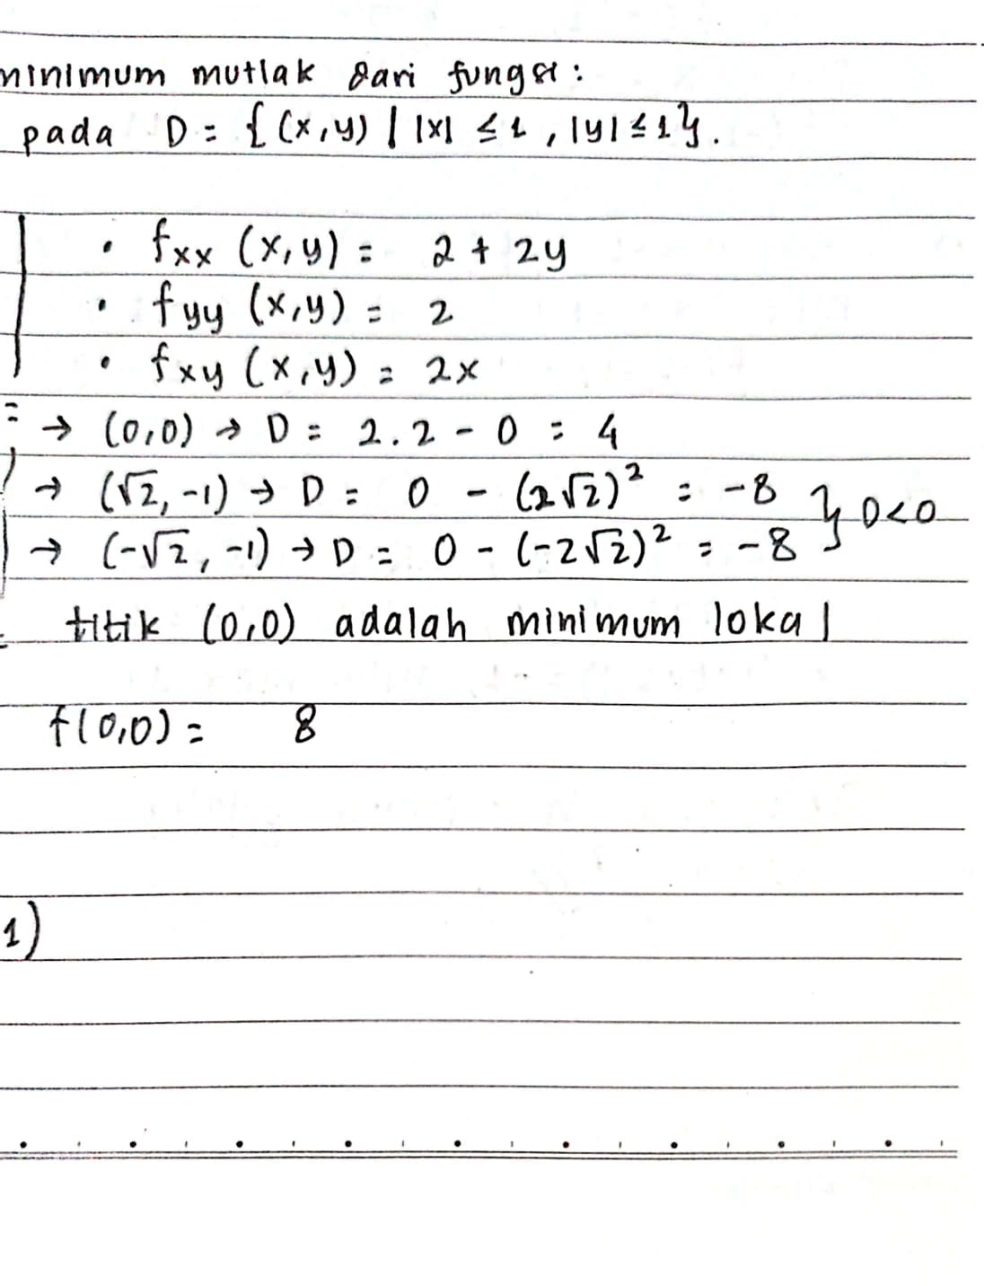 minimum mutlak dari fungsi :
pada D = { (x,y) | |x| ≤ 1 , |y| ≤ 1 }.
• fxx (x,y) = 2 + 2y
• fyy (x,y) = 2
• fxy (x,y) = 2x
= → (0,0) → D = 2.2 - 0 = 4
→ (√2, -1) → D = 0 - (2√2)² = -8 } D<0
→ (-√2, -1) → D = 0 - (-2√2)² = -8
titik (0,0) adalah minimum lokal
f(0,0) = 8
1)